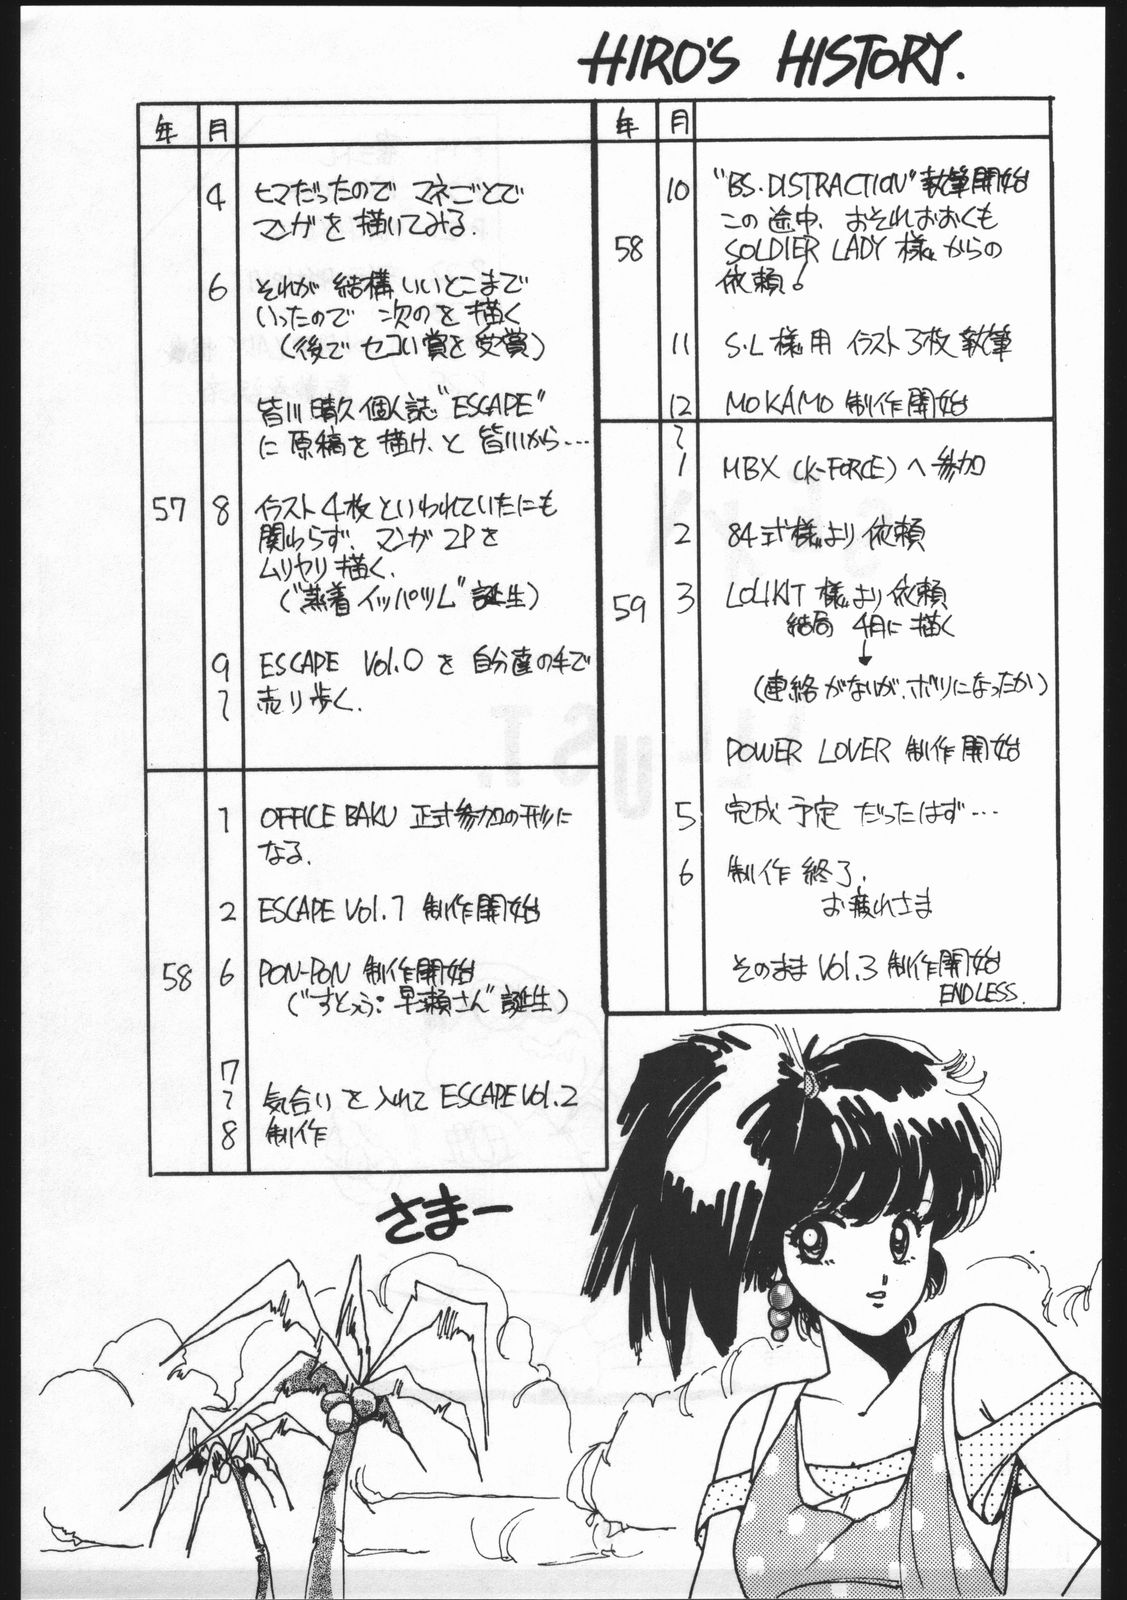 HIRO'S HISTORY.
年 月
57
4 ヒマだったので マネごとで
マンガを 描いてみる.
6 それが 結構いいとこまで
いったので 次のを 描く
(後で セコい賞を受賞)
皆川晴久個人誌"ESCAPE"
に 原稿を 描け、と 皆川から…
8 イラスト4枚といわれていたにも
関わらず、マンガ 2Pを
ムリヤリ 描く.
("蒸着イッパツム"誕生)
9 ESCAPE Vol.0 を 自分達の手で
〜 売り歩く.
58
1 OFFICE BAKU 正式参加の形に
なる.
2 ESCAPE Vol.1 制作開始
6 PON-PON 制作開始
早瀬さん"誕生)
7
〜 気合いを 入れて ESCAPE Vol.2
8 制作
年 月
58
10 "BS.DISTRACTION"執筆開始
この途中、おそれおおくも
SOLDIER LADY 様からの
依頼!
11 S・L 様用 イラスト3枚 執筆
12 MOKAMO 制作開始
59
〜
1 MBX (K-FORCE) へ 参加
2 84式様より 依頼
3 LOLIKIT 様より 依頼
結局 4月に 描く
↓
(連絡がないが、ボツになったか)
POWER LOVER 制作開始
5 完成 予定 だったはず…
6 制作 終了.
お疲れさま
そのまま Vol.3 制作開始
ENDLESS.
さまー